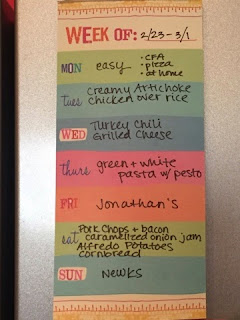 WEEK OF: 2/23 - 3/1
MON easy • CFA
• pizza
• at home
tues creamy Artichoke
chicken over rice
WED Turkey Chili
Grilled Cheese
thurs green + white
pasta w/ pesto
FRI Jonathan's
sat Pork Chops + bacon
caramelized onion jam
Alfredo Potatoes
Cornbread
SUN Newks